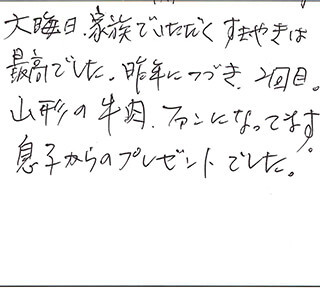 大晦日、家族でいただくすきやきは
最高でした。昨年につづき、2回目。
山形の牛肉、ファンになってます。
息子からのプレゼントでした。